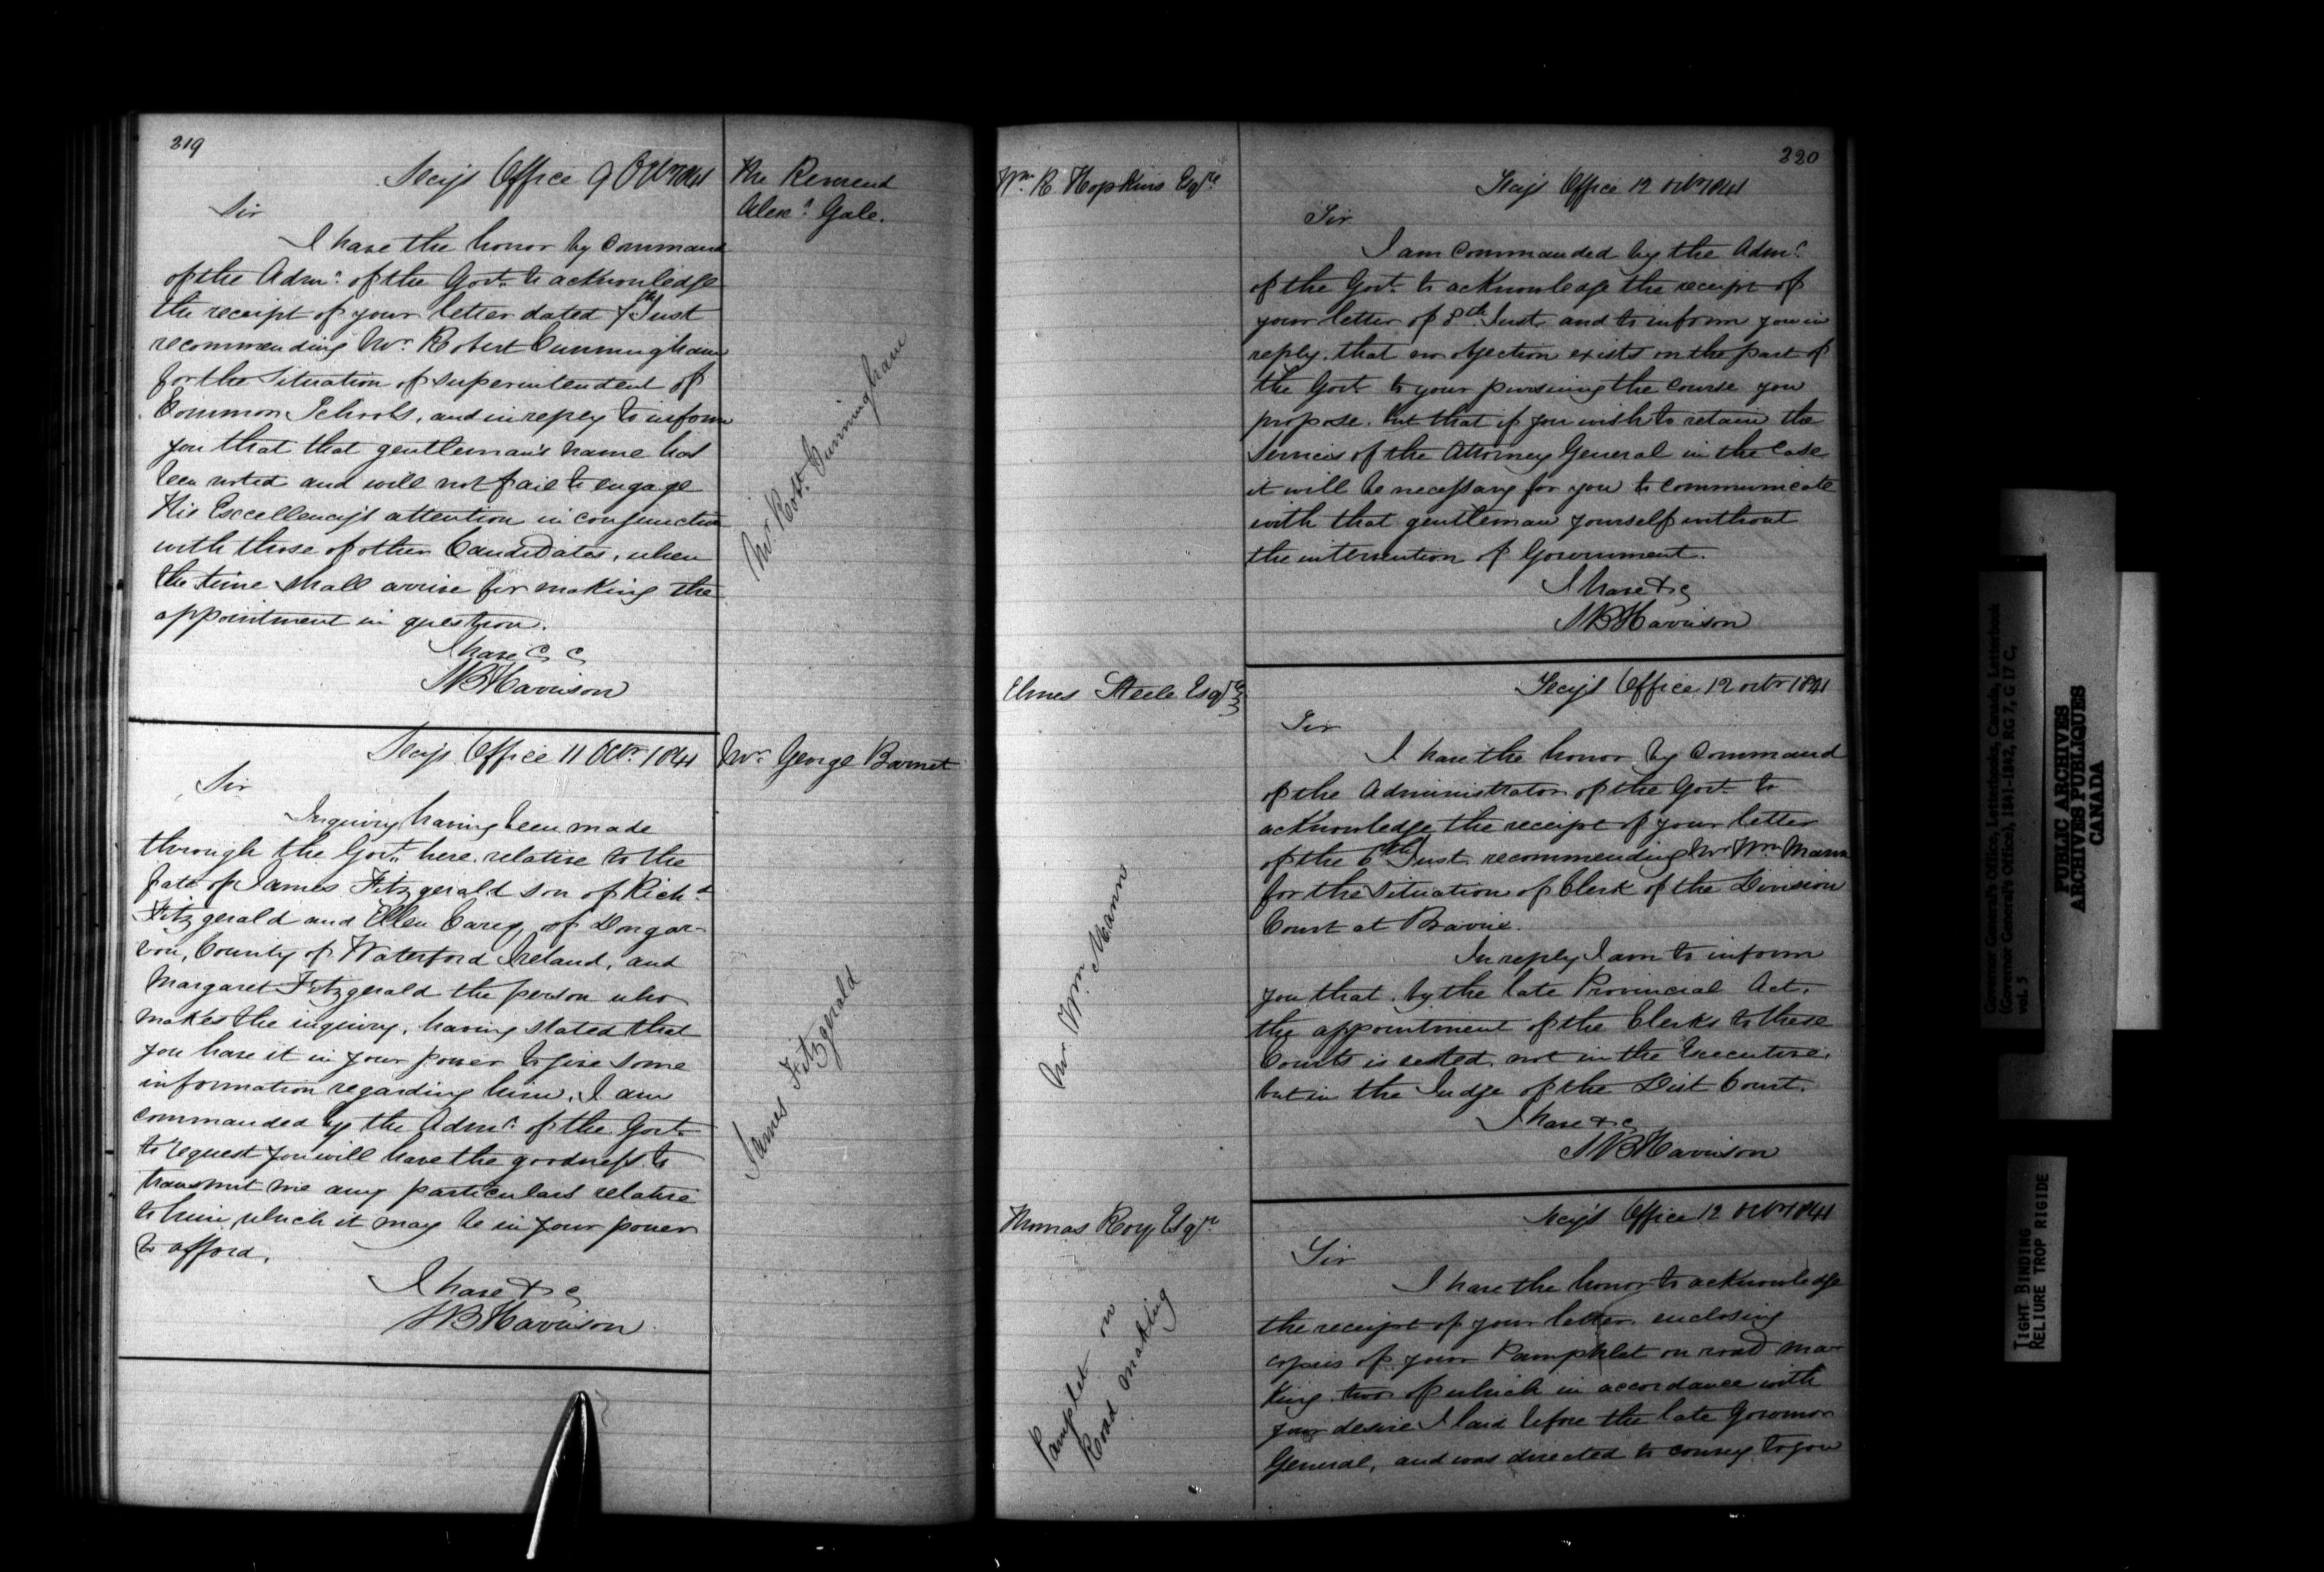 219
Secy's Office 9 Octr 1841
The Reverend
Alexr. Gale.
Sir
I have the honor by Command
of the Admr. of the Govt. to acknowledge
the receipt of your letter dated 7th Inst
recommending Mr. Robert Cunningham
for the Situation of Superintendent of
Common Schools, and in reply to inform
you that that gentleman's name has
been noted and will not fail to engage
His Excellency's attention in conjunction
with those of other Candidates, when
the time shall arrive for making the
appointment in question.
I have &c &c
SB Harrison
Mr. Robt. Cunningham
Secy's Office 11 Octr. 1841
Mr. George Barnet
Sir
Inquiry having been made
through the Govt. here relative to the
fate of James Fitzgerald son of Richd.
Fitzgerald and Ellen Carey of Dongar-
von, County of Waterford Ireland, and
Margaret Fitzgerald the person who
makes the inquiry, having stated that
you have it in your power to give some
information regarding him, I am
commanded by the Admr. of the Govt.
to request you will have the goodness to
transmit me any particulars relative
to him which it may be in your power
to afford.
I have &c
SB Harrison
James Fitzgerald
220
Wm. R Hopkins Esqre.
Secy's Office 12 Octr 1841
Sir
I am commanded by the Admr.
of the Govt. to acknowledge the receipt of
your letter of 8th Inst. and to inform you in
reply that no objection exists on the part of
the Govt to your pursuing the course you
propose. but that if you wish to retain the
Services of the Attorney General in the Case
it will be necessary for you to communicate
with that gentleman yourself without
the intervention of Government.
I have &c
SB Harrison
Elmes Steele Esqre
Secy's Office 12 Octr 1841
Sir
I have the honor by Command
of the Administrator of the Govt. to
acknowledge the receipt of your letter
of the 6th Inst. recommending Mr Wm. Mann
for the Situation of Clerk of the Division
Court at Barrie.
In reply I am to inform
you that, by the late Provincial Act,
the appointment of the Clerks to these
Courts is vested, not in the Executive,
but in the Judge of the Dist Court.
I have &c
SB Harrison
Mr. Wm. Mann
Thomas Roy Esqre.
Secy's Office 12 Octr 1841
Sir
I have the honor to acknowledge
the receipt of your letter enclosing
copies of your Pamphlet on road ma-
king. two of which in accordance with
your desire I laid before the late Governor
General, and was directed to convey to you
Pamplet on
Road making
Governor General's Office, Letterbooks, Canada, Letterbook
(Governor General's Office), 1841-1842, RG 7, G 17 C,
vol. 5
PUBLIC ARCHIVES
ARCHIVES PUBLIQUES
CANADA
TIGHT BINDING
RELIURE TROP RIGIDE